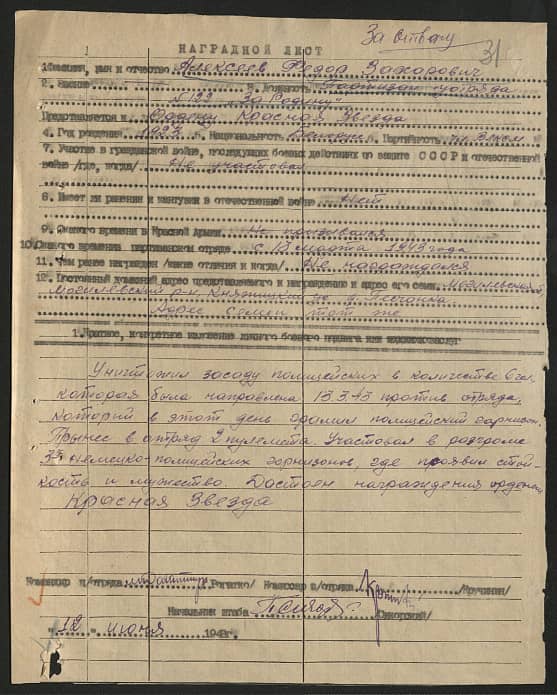 За отвагу
31
НАГРАДНОЙ ЛИСТ
1. Фамилия, имя и отчество Алексеев Федор Захарович
2. Звание 3. Должность Партизан отряда
№ 133 "За Родину"
Представляется к Ордену Красная Звезда
4. Год рождения 5. Национальность 6. Партийность
7. Участие в гражданской войне, последующих боевых действиях по защите СССР и отечественной
войне /где, когда/ Не участвовал
8. Имеет ли ранения и контузии в отечественной войне Нет
9. С какого времени в Красной Армии Не призывался
10. С какого времени в партизанском отряде с 13 марта 1943 года
11. Чем ранее награжден /какие отличия и когда/ Не награждался
12. Постоянный домашний адрес представляемого к награждению и адрес его семьи Могилевская
Могилевский р-н, Княжицкий
Адрес семьи тот же
1. Краткое, конкретное изложение личного боевого подвига или заслуг
Уничтожил засаду полицейских в количестве 6 чел.
которая была направлена 13.3.43 против отряда,
который в этот день громил полицейский гарнизон.
Принес в отряд 2 пулемета. Участвовал в разгроме
3х немецко-полицейских гарнизонов, где проявил стой-
кость и мужество. Достоин награждения орденом
Красная Звезда
Командир п/отряда /Рогатко/ Комиссар п/отряда /Кручинин/
Начальник штаба /Сикорский/
"12" июня 194 г.